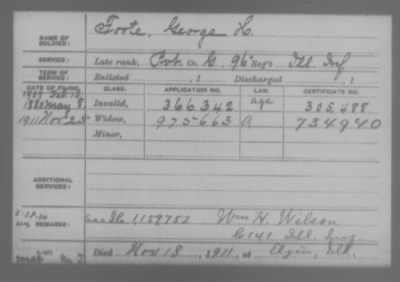 NAME OF SOLDIER: Foote, George H.
SERVICE: Late rank, Pvt. Co. G, 96" Regt. Ill. Inf
TERM OF SERVICE: Enlisted , 1 Discharged , 1
DATE OF FILING. CLASS. APPLICATION NO. LAW. CERTIFICATE NO.
1907 Feb. 12,
1880 May 8. Invalid, 366.342 age 305.488
1911 Nov 25 Widow, 975663 A 734940
Minor,
ADDITIONAL SERVICES:
REMARKS: 1159752 Wm H. Wilson
C 141 Ill. Inf.
Died Nov 18, 1911, at Elgin, Ill.